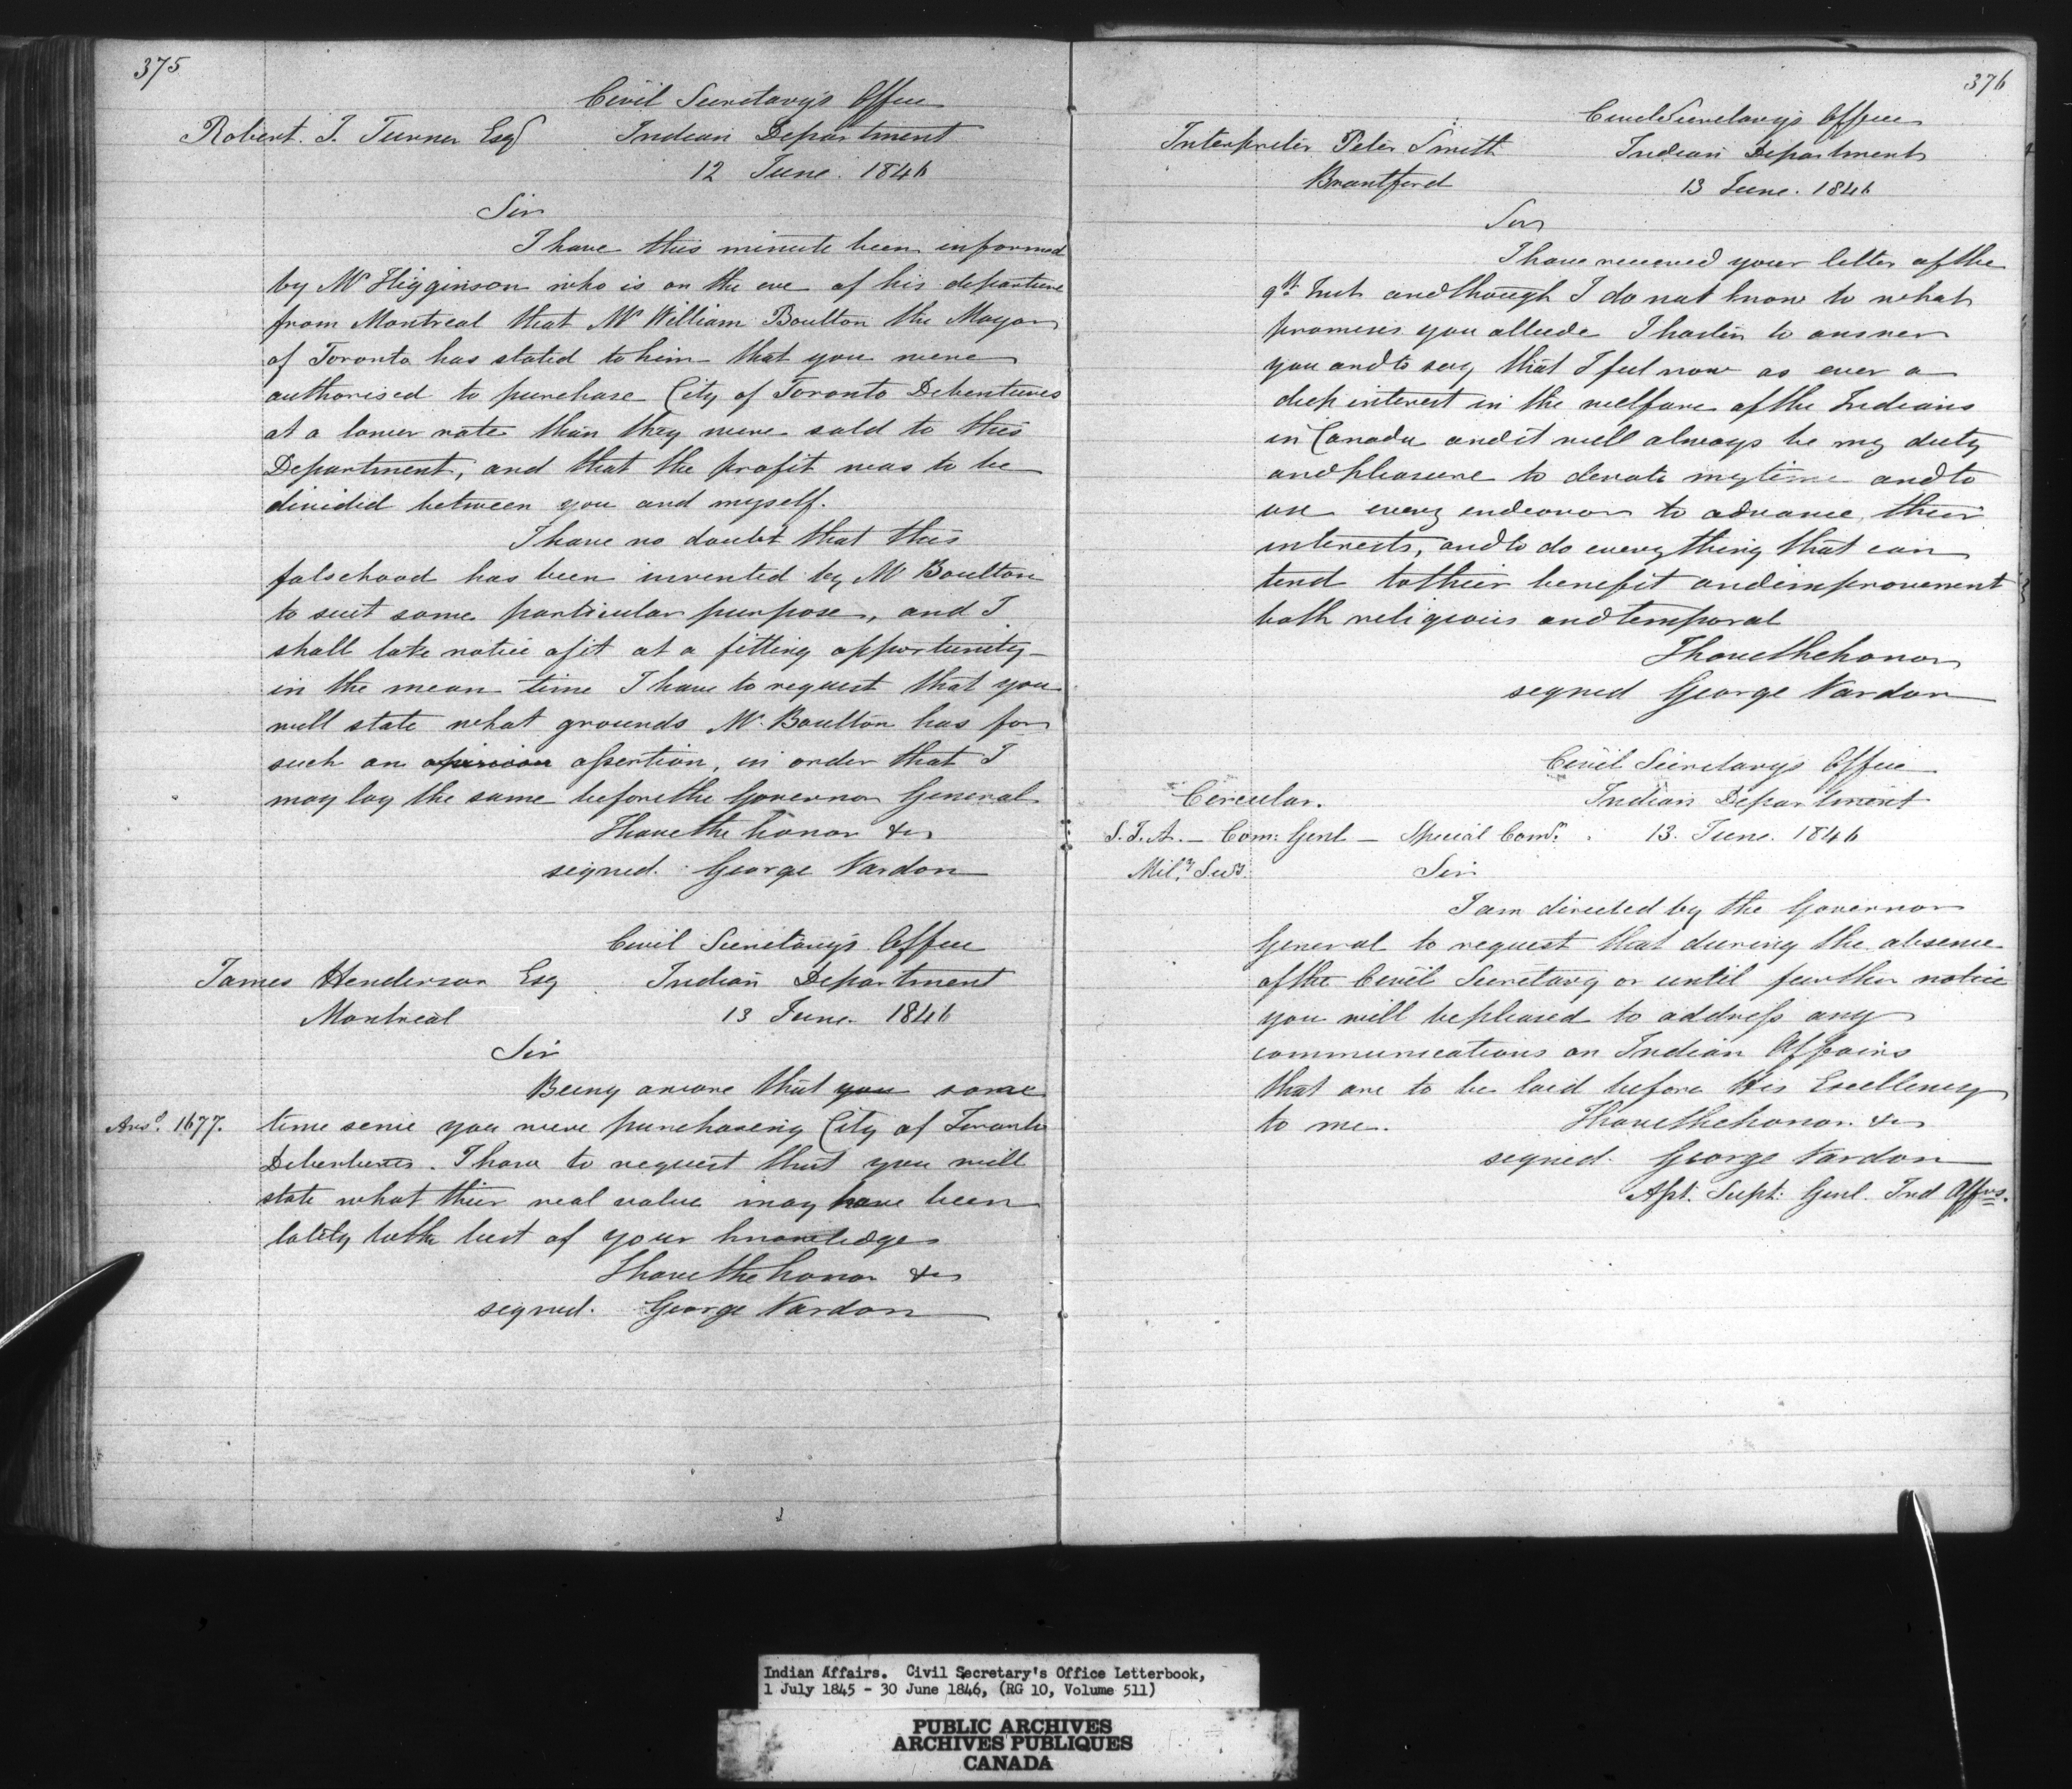 375
Civil Secretary's Office
Robert. T. Turner Esqr Indian Department
12 June. 1846
Sir
I have this minute been informed
by Mr Higginson who is on the eve of his departure
from Montreal that Mr William Boulton the Mayor
of Toronto has stated to him that you were
authorised to purchase City of Toronto Debentures
at a lower rate than they were sold to this
Department, and that the profit was to be
divided between you and myself.
I have no doubt that this
falsehood has been invented by Mr Boulton
to suit some particular purpose, and I
shall take notice of it at a fitting opportunity—
in the mean time I have to request that you
will state what grounds Mr. Boulton has for
such an opinion assertion, in order that I
may lay the same before the Governor General
I have the honor &c
signed. George Vardon
Civil Secretary's Office
James Henderson Esq Indian Department
Montreal 13 June. 1846
Sir
Being aware that you some
Ansd. 1677. time since you were purchasing City of Toronto
Debentures. I have to request that you will
state what their real value may have been
lately to the best of your knowledge
I have the honor &c
signed. George Vardon
376
Civil Secretary's Office
Interpreter Peter Smith Indian Department
Brantford 13 June. 1846
Sir
I have received your letter of the
9th Inst and though I do not know to what
promises you allude I hasten to answer
you and to say that I feel now as ever a
deep interest in the welfare of the Indians
in Canada and it will always be my duty
and pleasure to devote my time and to
use every endeavor to advance their
interests, and to do every thing that can
tend to their benefit and improvement
both religious and temporal
I have the honor
signed George Vardon
Civil Secretary's Office
Circular. Indian Department
S.I.A. — Com: Genl — Special Comr. 13. June. 1846
Mily Secy. Sir
I am directed by the Governor
General to request that during the absence
of the Civil Secretary or until further notice
you will be pleased to address any
communications on Indian Affairs
that are to be laid before His Excellency
to me. I have the honor. &c
signed. George Vardon
Asst. Supt: Genl. Ind Affrs.
Indian Affairs. Civil Secretary's Office Letterbook,
1 July 1845 - 30 June 1846, (RG 10, Volume 511)
PUBLIC ARCHIVES
ARCHIVES PUBLIQUES
CANADA